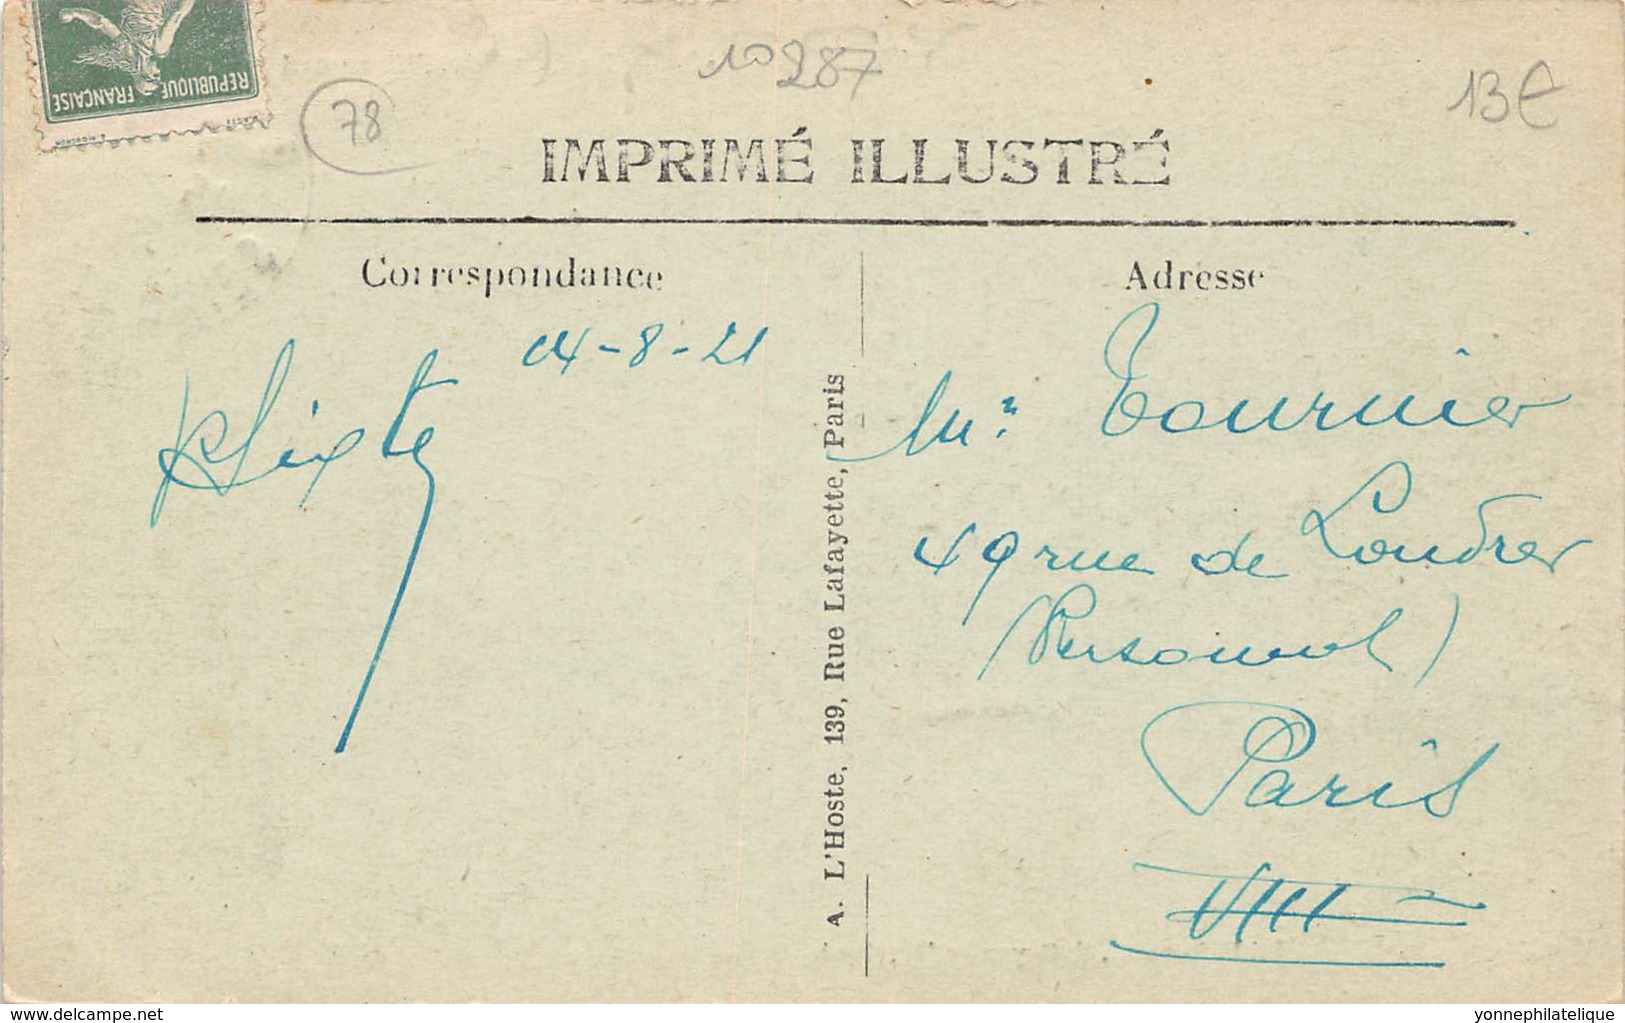 REPUBLIQUE FRANÇAISE
78
10287
13€
IMPRIMÉ ILLUSTRÉ
Correspondance
Adresse
14-8-21
Sixte
A. L'Hoste, 139, Rue Lafayette, Paris
Mr Tournier
49 rue de Londres
(Personnel)
Paris
VIII
www.delcampe.net
yonnephilatelique